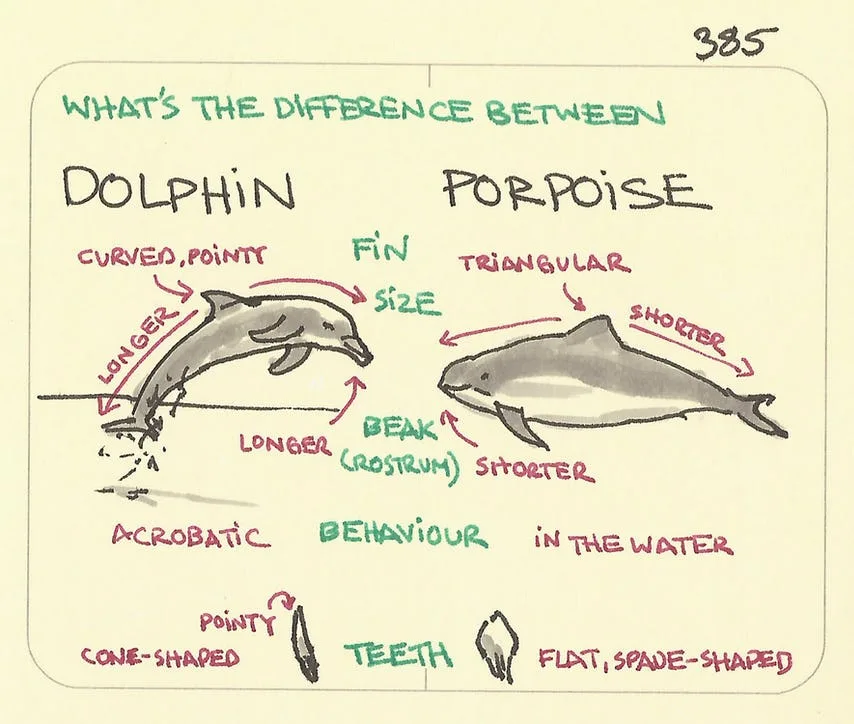 385
WHAT'S THE DIFFERENCE BETWEEN
DOLPHIN PORPOISE
CURVED, POINTY FIN TRIANGULAR
SIZE
LONGER SHORTER
LONGER BEAK
(ROSTRUM) SHORTER
ACROBATIC BEHAVIOUR IN THE WATER
POINTY
CONE-SHAPED TEETH FLAT, SPADE-SHAPED